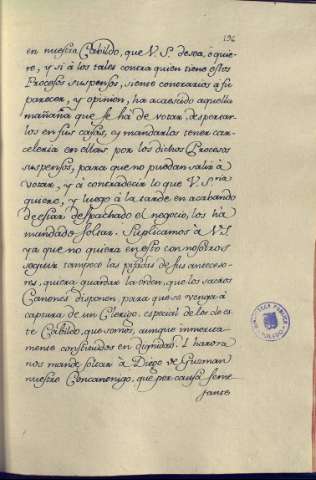 132
en nuestro Cabildo, que V. S. desea, o quie
re, y si à los tales contra quien tiene estos
Procesos suspensos, siente contrarios à su
parecer, y opinion, ha acaecido aquella
mañana que se hà de votar, despertar
los en sus casas, y mandarlos tener car
celeria en ellas por los dichos Procesos
suspensos, para que no puedan salir à
votar, y à contradecir lo que V. S.ria
quiere, y luego à la tarde en acabando
de estar despachado el negocio, los hà
mandado soltar. Suplicamos à V. S.
ya que no quiera en esto con nosotros
seguir tampoco las pisadas de sus anteceso
res, quiera guardar la orden, que los sacros
Canones disponen para que se venga à
captura de un Clerigo, especial de los de es
te Cabildo, que somos, aunque inmerita
mente constituidos en dignidad. I hara
nos mande soltar à Diego de Guzman
nuestro Concanonigo, que por causa seme
jante